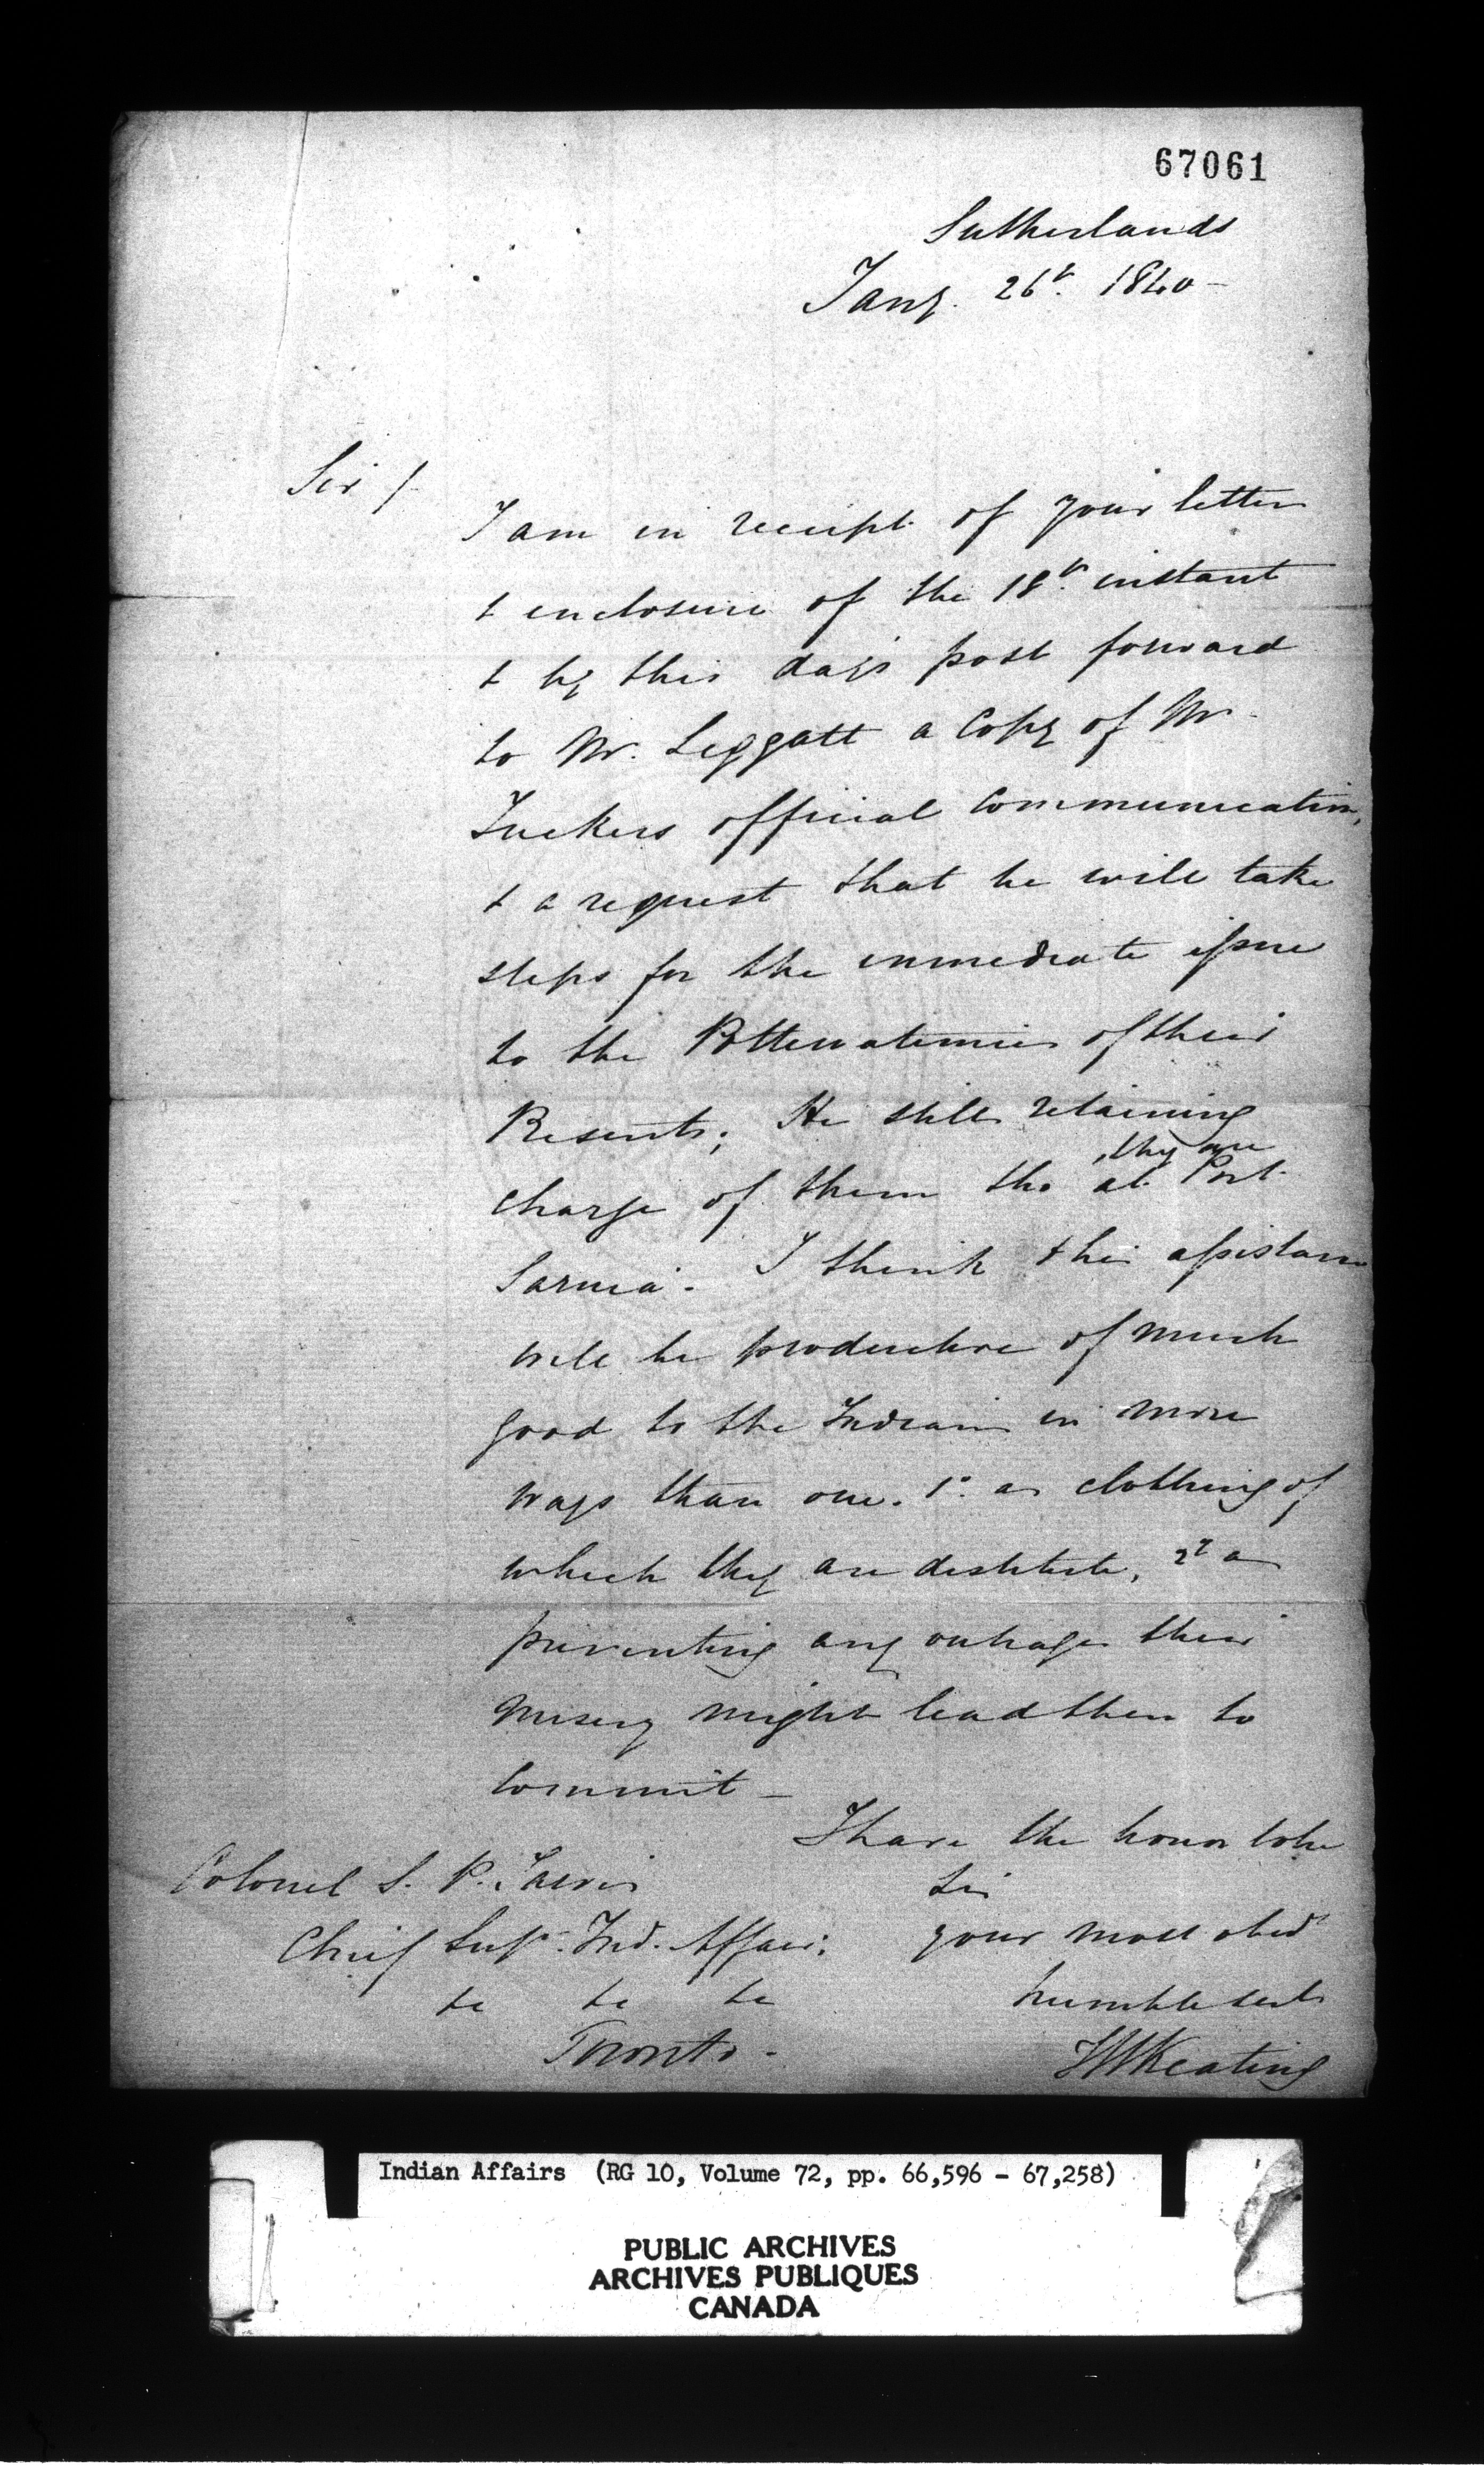 67061
Sutherlands
Jany. 26th. 1840 -
Sir /
I am in receipt of your letter
& enclosure of the 18th. instant
& by this days post forward
to Mr. Leggatt a Copy of Mr.
Tuckers official Communication,
& a request that he will take
steps for the immediate issue
to the Pottewatemies of their
Presents; He still retaining
charge of them tho' ,they are at Port
Sarnia. I think this assistance
will be productive of much
good to the Indians in more
ways than one. 1o. as clothing of
which they are destitute, 2d as
preventing any outrage their
misery might lead them to
commit -
I have the honor to be
Sir
your most obed
humble sert
JWKeating
Colonel S. P. Jarvis
Chief Supt. Ind. Affairs
&c &c &c
Toronto -
Indian Affairs (RG 10, Volume 72, pp. 66,596 - 67,258)
PUBLIC ARCHIVES
ARCHIVES PUBLIQUES
CANADA